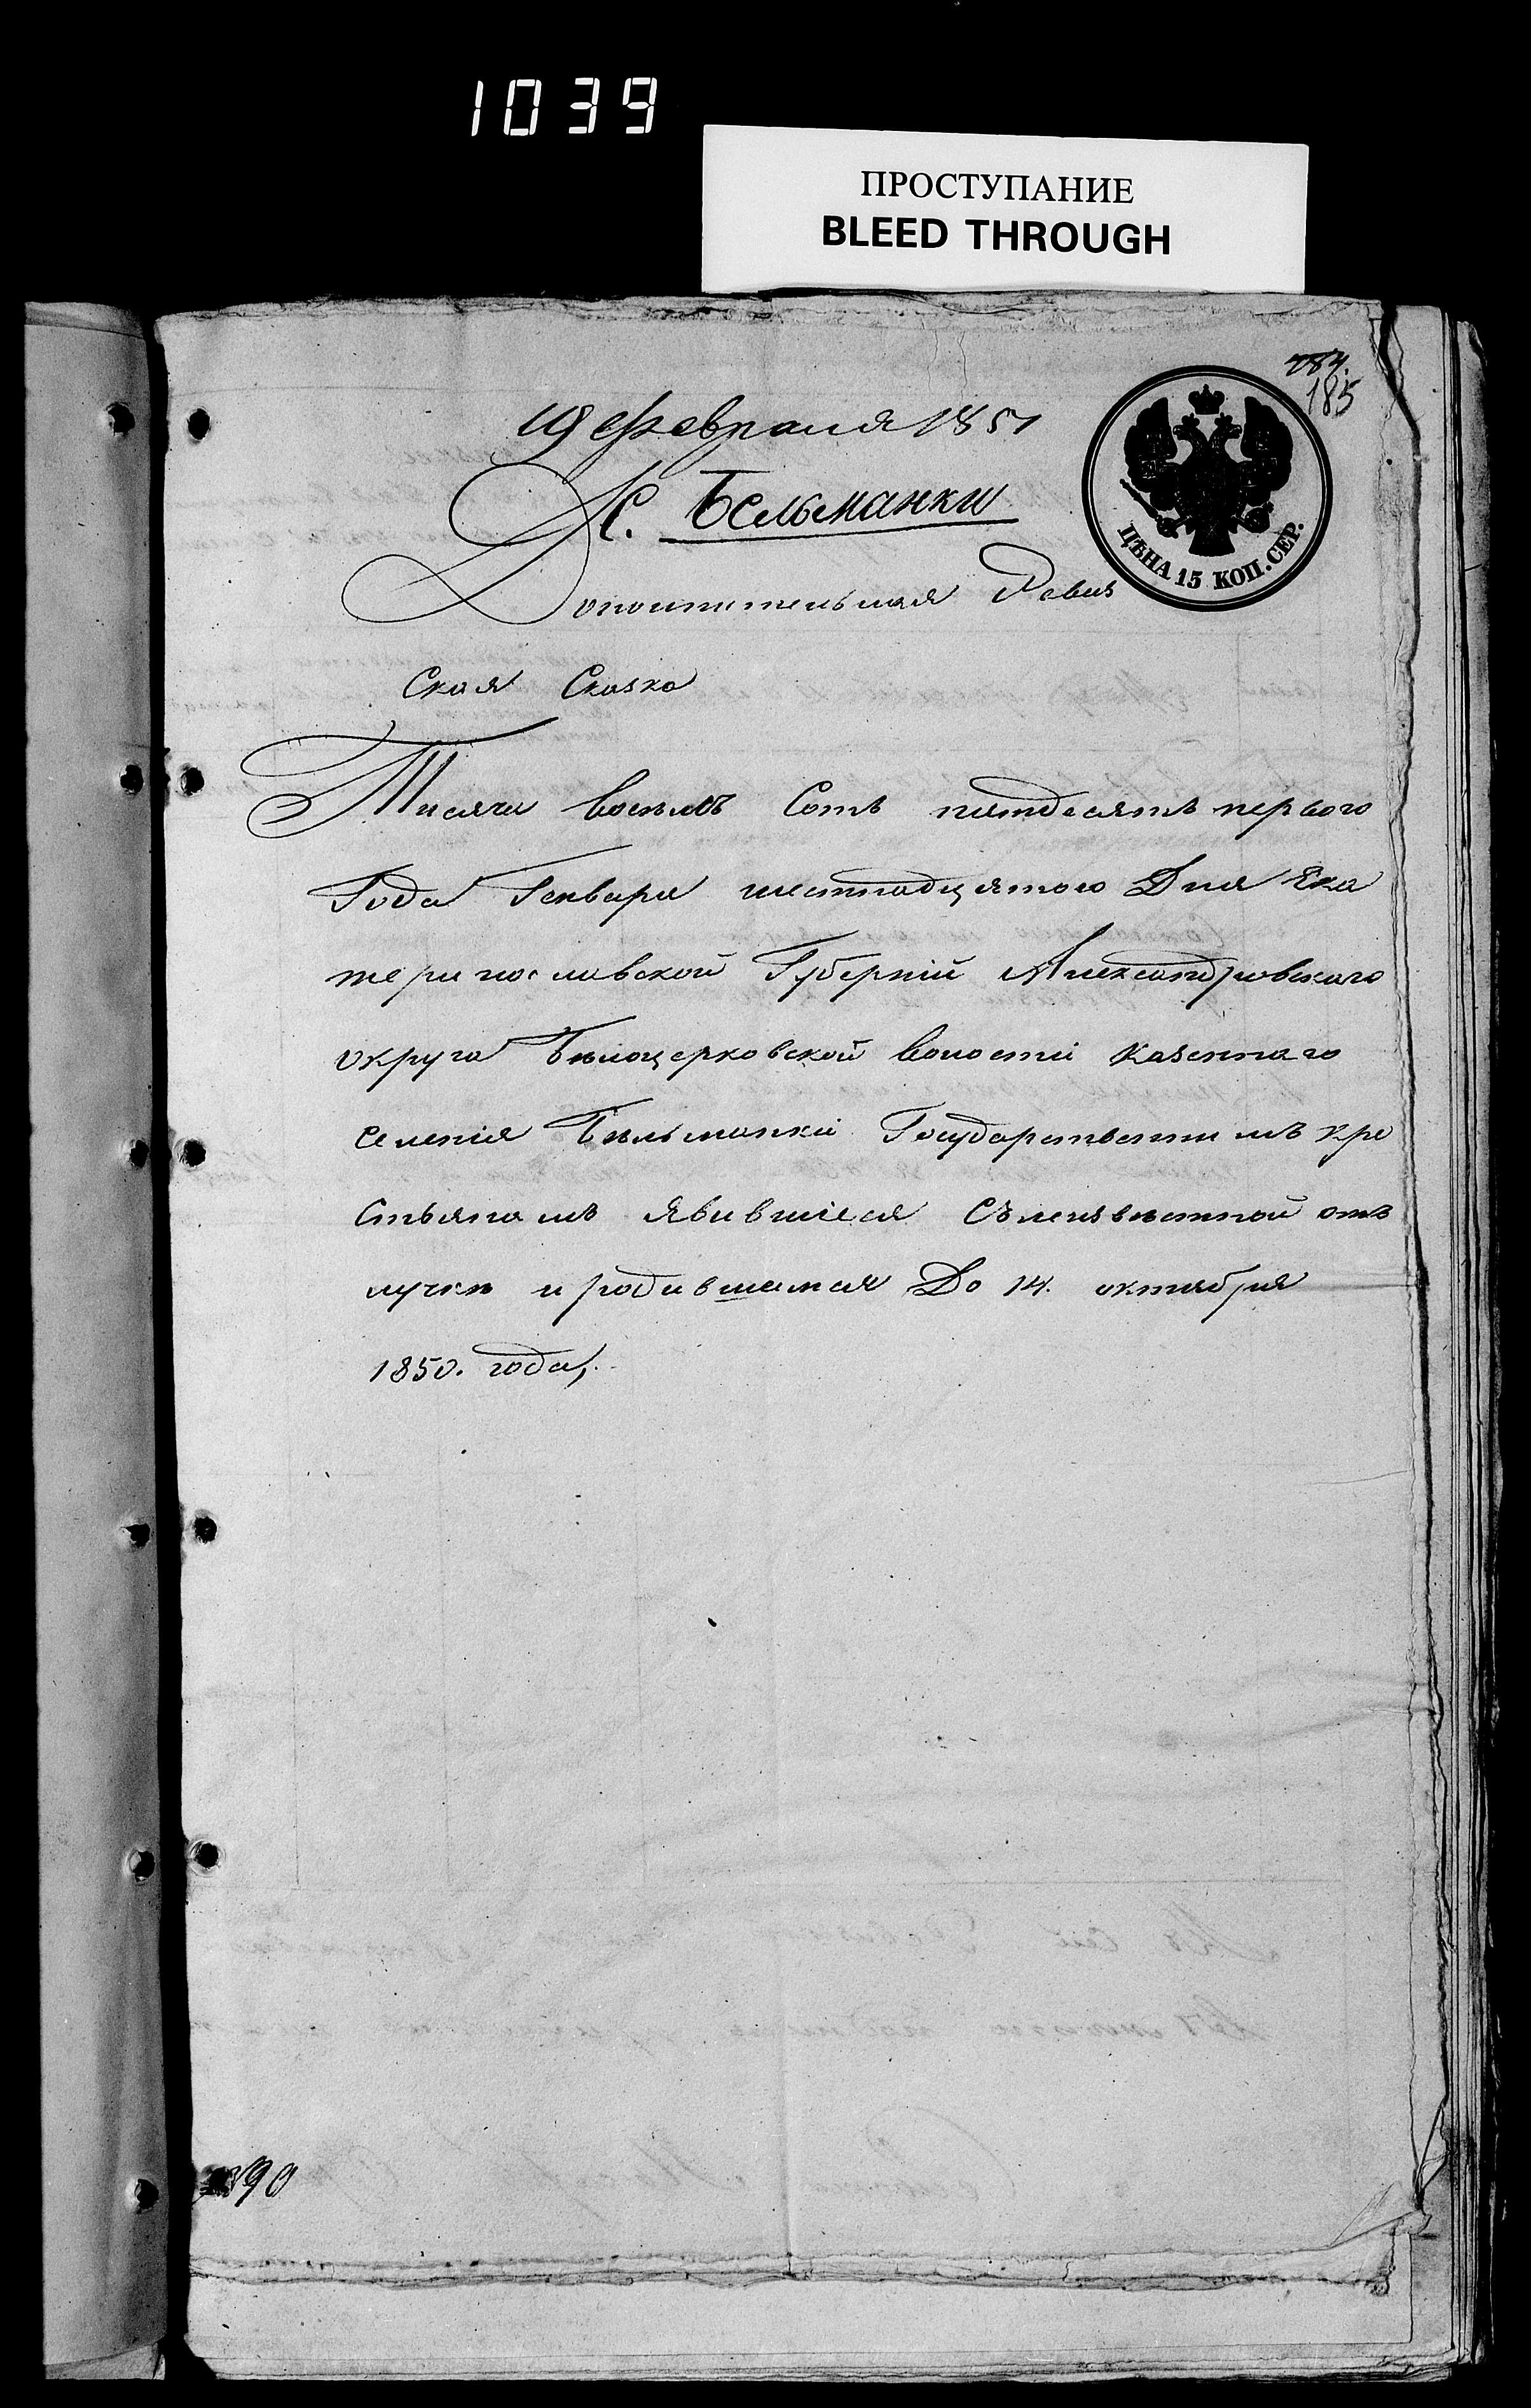 1039
ПРОСТУПАНИЕ
BLEED THROUGH
184.
185
19 Февраля 1851
С. Бельманки
ЦѢНА 15 КОП. СЕР.
Дополнительная Ревиз
Ская Сказка
Тисяча восѣмъ Сотъ пятдесятъ первого
Года Генваря шестнадцятого Дня Ека
теринославской Губерній Александровского
округа Бѣлоцерковской волости казеннаго
селенія Бѣльманки Государственнимъ кре
стьянамъ явившіеся Съ неизвѣстной от
лучки и родившимся До 14. октября
1850. года,
90